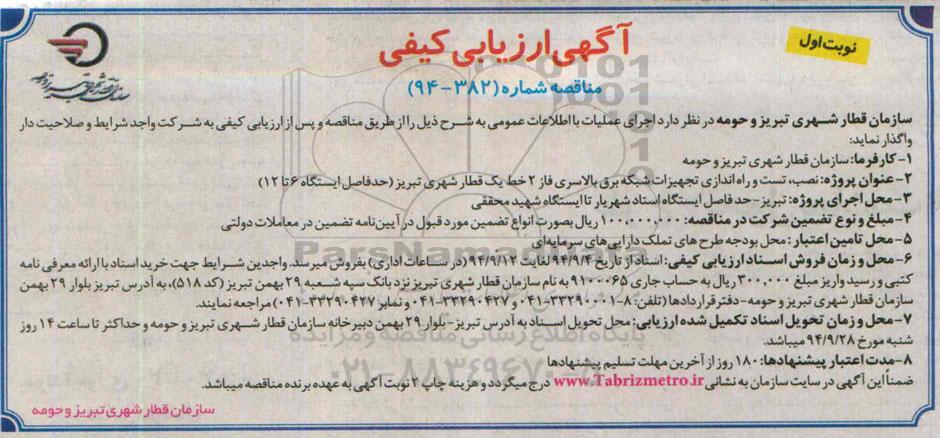 نوبت اول
آگهی ارزیابی کیفی
مناقصه شماره (۳۸۲-۹۴)
سازمان قطار شهری تبریز و حومه در نظر دارد اجرای عملیات با اطلاعات عمومی به شرح ذیل را از طریق مناقصه و پس از ارزیابی کیفی به شرکت واجد شرایط و صلاحیت دار
واگذار نماید:
۱- کارفرما: سازمان قطار شهری تبریز و حومه
۲- عنوان پروژه: نصب، تست و راه اندازی تجهیزات شبکه برق بالاسری فاز ۲ خط یک قطار شهری تبریز (حدفاصل ایستگاه ۶ تا ۱۲)
۳- محل اجرای پروژه: تبریز- حدفاصل ایستگاه استاد شهریار تا ایستگاه شهید محققی
۴- مبلغ و نوع تضمین شرکت در مناقصه: ۱۰۰,۰۰۰,۰۰۰ ریال بصورت انواع تضمین مورد قبول در آیین نامه تضمین در معاملات دولتی
۵- محل تامین اعتبار: محل بودجه طرح های تملک دارایی های سرمایه ای
۶- محل و زمان فروش اسناد ارزیابی کیفی: اسناد از تاریخ ۹۴/۹/۴ لغایت ۹۴/۹/۱۲ (در ساعات اداری) بفروش میرسد. واجدین شرایط جهت خرید اسناد با ارائه معرفی نامه
کتبی و رسید واریز مبلغ ۳۰۰,۰۰۰ ریال به حساب جاری ۹۱۰۰۰۶۵ به نام سازمان قطار شهری تبریز نزد بانک سپه شعبه ۲۹ بهمن تبریز (کد ۵۱۸)، به آدرس تبریز بلوار ۲۹ بهمن
سازمان قطار شهری تبریز و حومه- دفتر قراردادها (تلفن: ۸-۳۳۲۹۰۰۰۱-۰۴۱ و ۳۳۲۹۰۴۲۷-۰۴۱ و نمابر ۳۳۲۹۰۴۲۷-۰۴۱) مراجعه نمایند.
۷- محل و زمان تحویل اسناد تکمیل شده ارزیابی: محل تحویل اسناد به آدرس تبریز- بلوار ۲۹ بهمن دبیرخانه سازمان قطار شهری تبریز و حومه و حداکثر تا ساعت ۱۴ روز
شنبه مورخ ۹۴/۹/۲۸ میباشد.
۸- مدت اعتبار پیشنهادها: ۱۸۰ روز از آخرین مهلت تسلیم پیشنهادها
ضمناً این آگهی در سایت سازمان به نشانی www.Tabrizmetro.ir درج میگردد و هزینه چاپ ۲ نوبت آگهی به عهده برنده مناقصه میباشد.
سازمان قطار شهری تبریز و حومه
ParsNamadData
پایگاه اطلاع رسانی مناقصه و مزایده
۰۲۱-۸۸۳۴۹۶۷۰